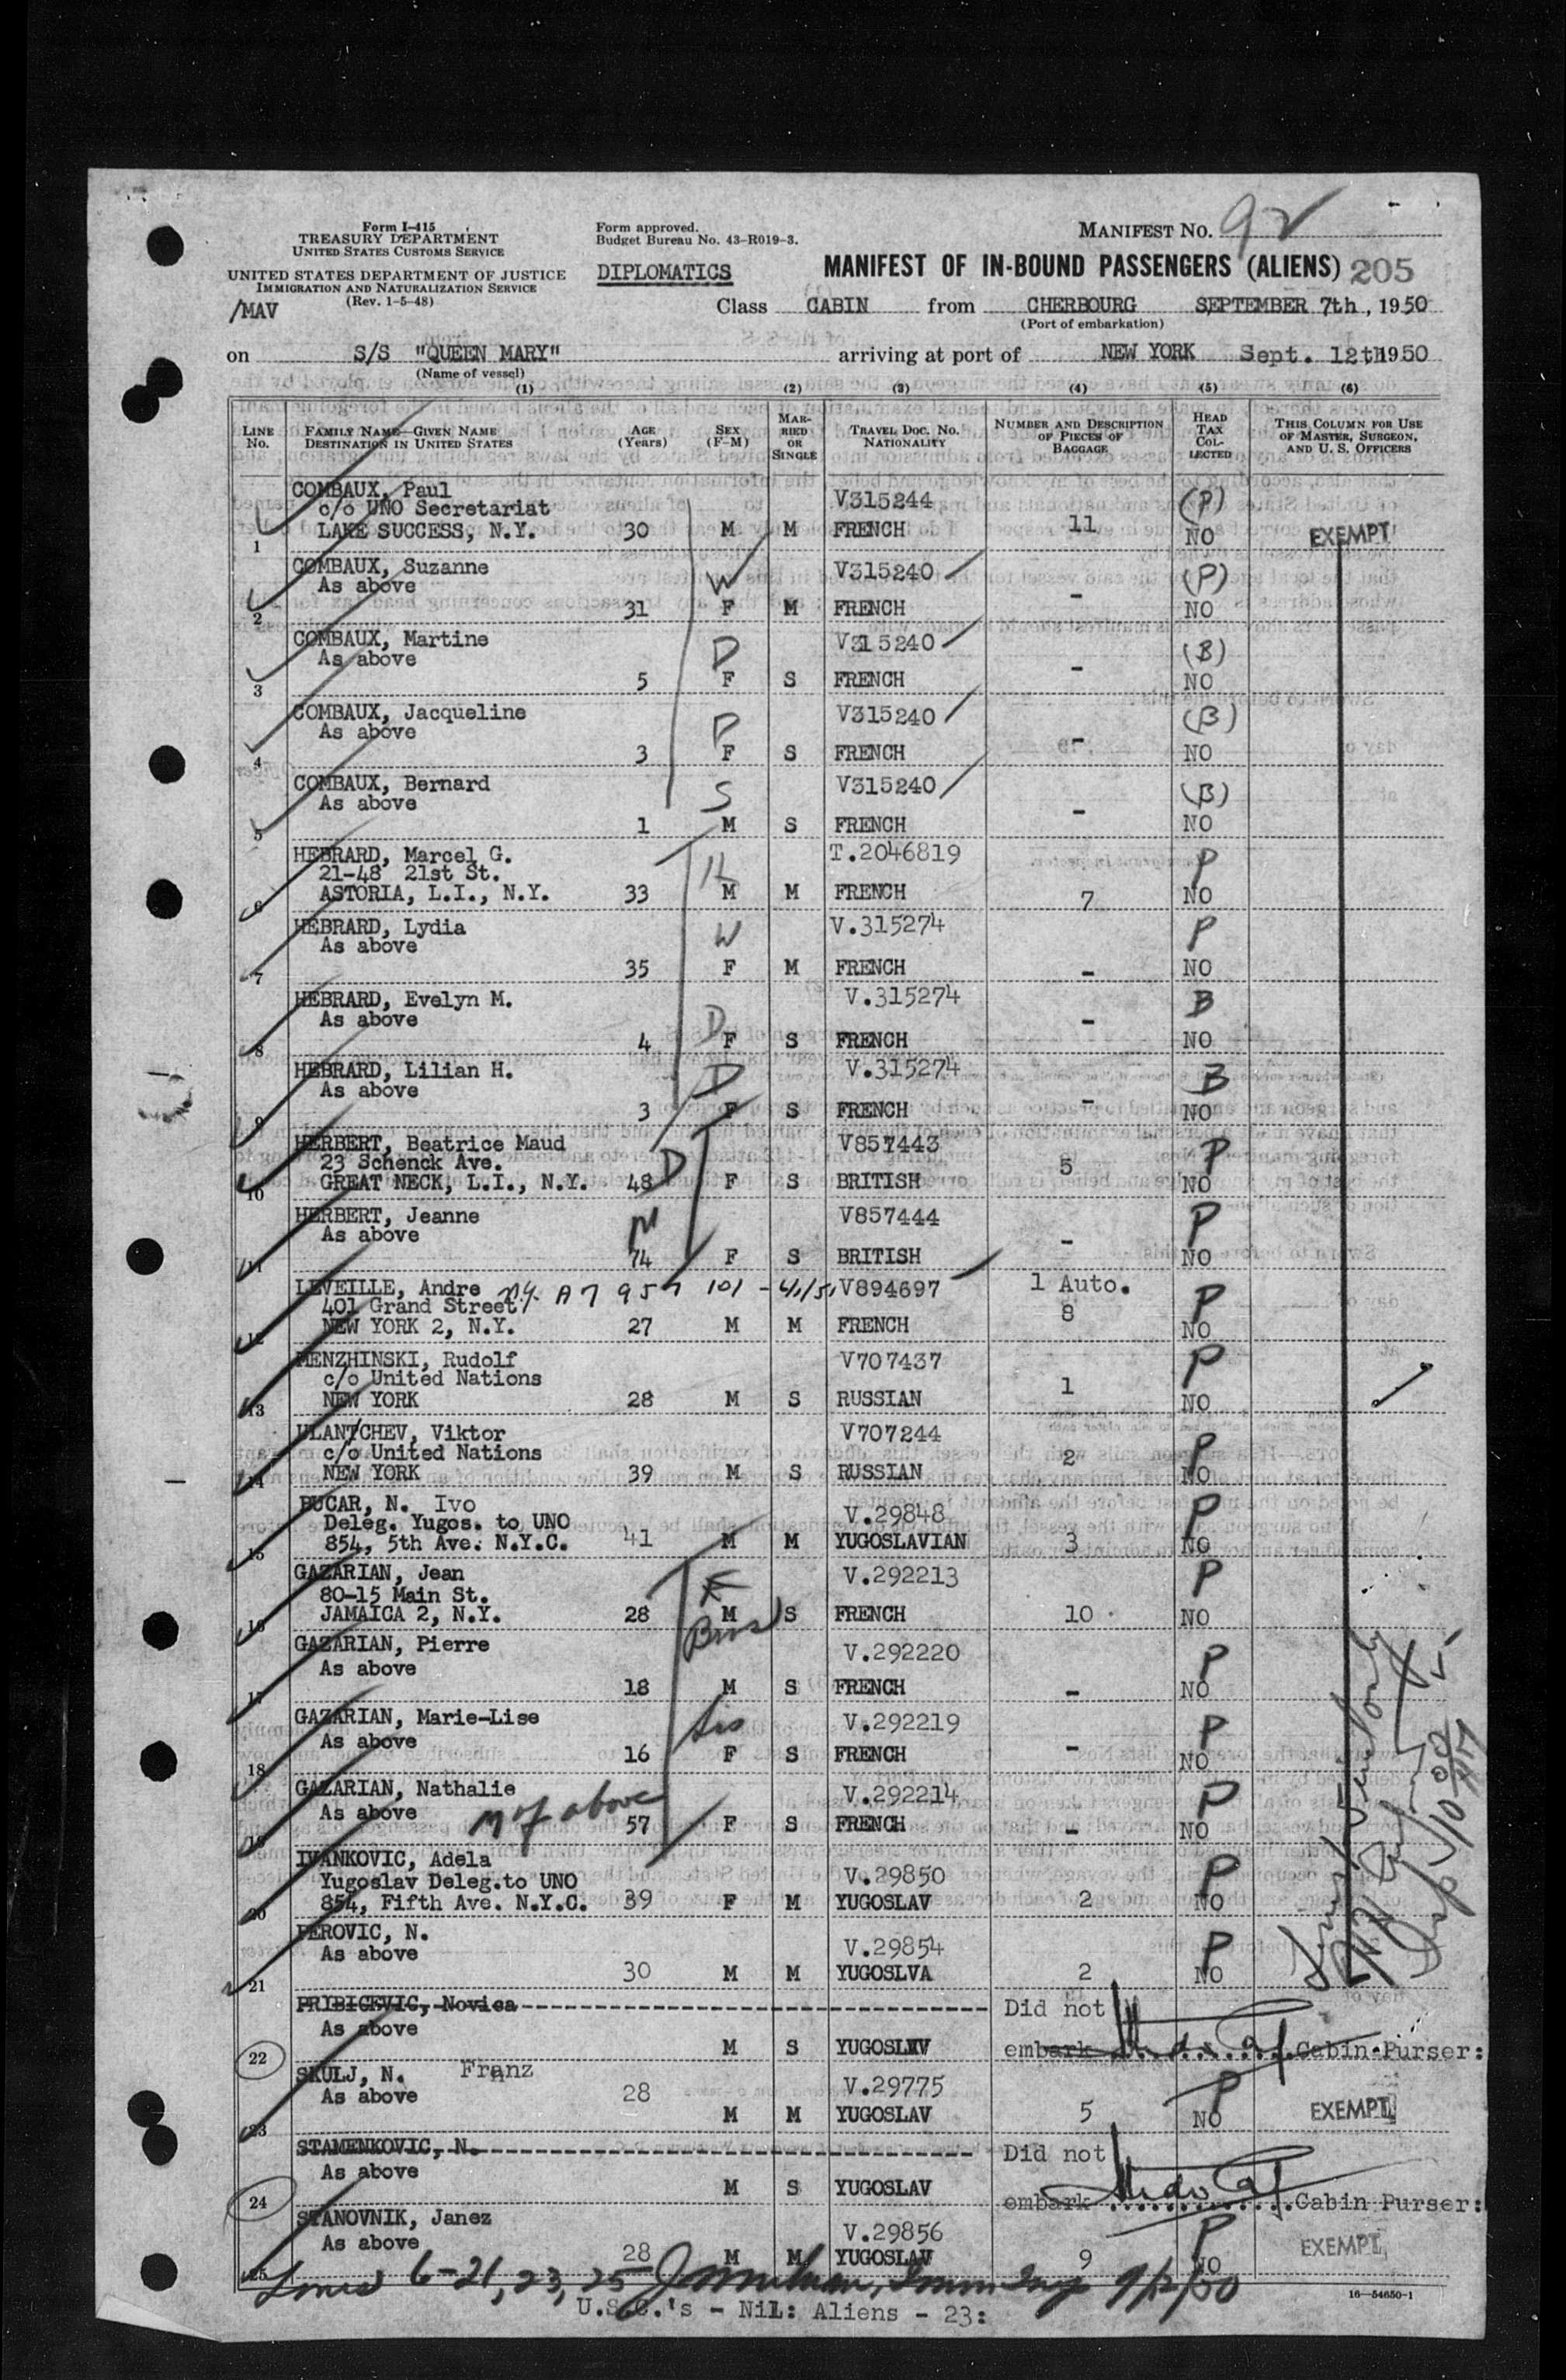 Form I-415
TREASURY DEPARTMENT
UNITED STATES CUSTOMS SERVICE
UNITED STATES DEPARTMENT OF JUSTICE
IMMIGRATION AND NATURALIZATION SERVICE
(Rev. 1-5-48)
/MAV
Form approved.
Budget Bureau No. 43-R019-3.
DIPLOMATICS
MANIFEST NO. 92
MANIFEST OF IN-BOUND PASSENGERS (ALIENS) 205
Class CABIN from CHERBOURG SEPTEMBER 7th, 1950
(Port of embarkation)
on S/S "QUEEN MARY" arriving at port of NEW YORK Sept. 12th 1950
(Name of vessel)
(1) (2) (3) (4) (5) (6)
LINE No. FAMILY NAME—GIVEN NAME DESTINATION IN UNITED STATES AGE (Years) SEX (F-M) MARRIED OR SINGLE TRAVEL DOC. NO. NATIONALITY NUMBER AND DESCRIPTION OF PIECES OF BAGGAGE HEAD TAX COLLECTED THIS COLUMN FOR USE OF MASTER, SURGEON, AND U. S. OFFICERS
COMBAUX, Paul V315244 (P)
c/o UNO Secretariat
1 LAKE SUCCESS, N.Y. 30 M M FRENCH 11 NO EXEMPT
COMBAUX, Suzanne W V315240 (P)
As above
2 31 F M FRENCH - NO
COMBAUX, Martine D V315240 (B)
As above
3 5 F S FRENCH - NO
COMBAUX, Jacqueline D V315240 (B)
As above
4 3 F S FRENCH - NO
COMBAUX, Bernard S V315240 (B)
As above
5 1 M S FRENCH - NO
HEBRARD, Marcel G. H T.2046819 P
21-48 21st St.
6 ASTORIA, L.I., N.Y. 33 M M FRENCH 7 NO
HEBRARD, Lydia W V.315274 P
As above
7 35 F M FRENCH - NO
HEBRARD, Evelyn M. D V.315274 B
As above
8 4 F S FRENCH - NO
HEBRARD, Lilian H. D V.315274 B
As above
9 3 F S FRENCH - NO
HERBERT, Beatrice Maud V857443 P
23 Schenck Ave. D
10 GREAT NECK, L.I., N.Y. 48 F S BRITISH 5 NO
HERBERT, Jeanne M V857444 P
As above
11 74 F S BRITISH - NO
LEVEILLE, Andre V894697 1 Auto. P
401 Grand Street
12 NEW YORK 2, N.Y. 27 M M FRENCH 8 NO
MENZHINSKI, Rudolf V707437 P
c/o United Nations
13 NEW YORK 28 M S RUSSIAN 1 NO
ULANTCHEV, Viktor V707244 P
c/o United Nations
14 NEW YORK 39 M S RUSSIAN 2 NO
BUCAR, N. Ivo V.29848 P
Deleg. Yugos. to UNO
15 854, 5th Ave. N.Y.C. 41 M M YUGOSLAVIAN 3 NO
GAZARIAN, Jean V.292213 P
80-15 Main St.
16 JAMAICA 2, N.Y. 28 M S FRENCH 10 NO
GAZARIAN, Pierre Bros V.292220 P
As above
17 18 M S FRENCH - NO
GAZARIAN, Marie-Lise Sis V.292219 P
As above
18 16 F S FRENCH - NO
GAZARIAN, Nathalie V.292214 P
As above M of above
19 57 F S FRENCH - NO
IVANKOVIC, Adela V.29850 P
Yugoslav Deleg.to UNO
20 854, Fifth Ave. N.Y.C. 39 F M YUGOSLAV 2 NO
PEROVIC, N. V.29854 P
As above
21 30 M M YUGOSLVA 2 NO
PRIBICEVIC, Novica Did not
As above
22 M S YUGOSLAV embark Cabin Purser:
SKULJ, N. Franz V.29775 P
As above 28
23 M M YUGOSLAV 5 NO EXEMPT
STAMENKOVIC, N. Did not
As above
24 M S YUGOSLAV embark Cabin Purser:
STANOVNIK, Janez V.29856 P
As above
25 28 M M YUGOSLAV 9 NO EXEMPT
Lines 6-21, 23, 25 9/12/50
U.S.C.'s - Nil: Aliens - 23:
16—54650-1